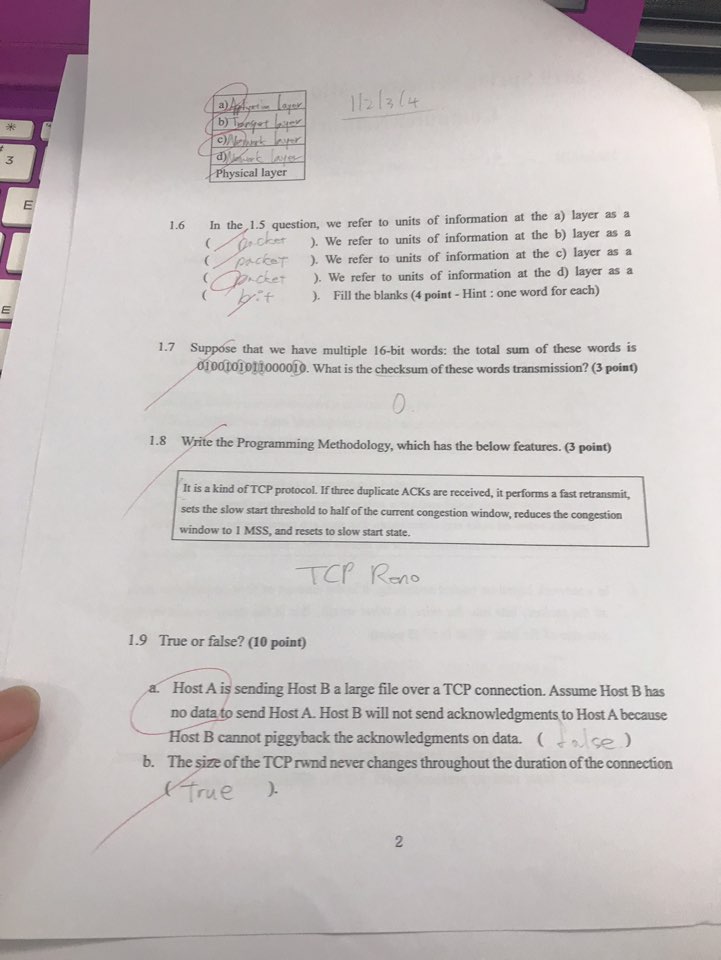 a) Application layer
1/2/3/4
b) Transport layer
c) Network layer
d) Network layer
Physical layer
1.6 In the 1.5 question, we refer to units of information at the a) layer as a
( packet ). We refer to units of information at the b) layer as a
( packet ). We refer to units of information at the c) layer as a
( packet ). We refer to units of information at the d) layer as a
( bit ). Fill the blanks (4 point - Hint : one word for each)
1.7 Suppose that we have multiple 16-bit words: the total sum of these words is
0100101011000010. What is the checksum of these words transmission? (3 point)
0.
1.8 Write the Programming Methodology, which has the below features. (3 point)
It is a kind of TCP protocol. If three duplicate ACKs are received, it performs a fast retransmit,
sets the slow start threshold to half of the current congestion window, reduces the congestion
window to 1 MSS, and resets to slow start state.
TCP Reno
1.9 True or false? (10 point)
a. Host A is sending Host B a large file over a TCP connection. Assume Host B has
no data to send Host A. Host B will not send acknowledgments to Host A because
Host B cannot piggyback the acknowledgments on data. ( false )
b. The size of the TCP rwnd never changes throughout the duration of the connection
( True ).
2
3
E
E